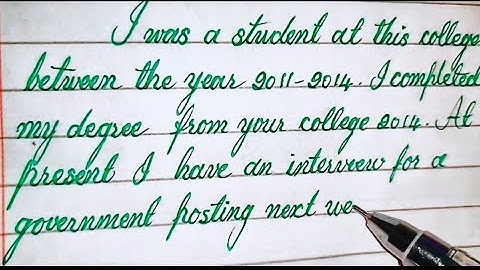 I was a student at this college
between the year 2011-2014. I completed
my degree from your college 2014. At
present I have an interview for a
government posting next we